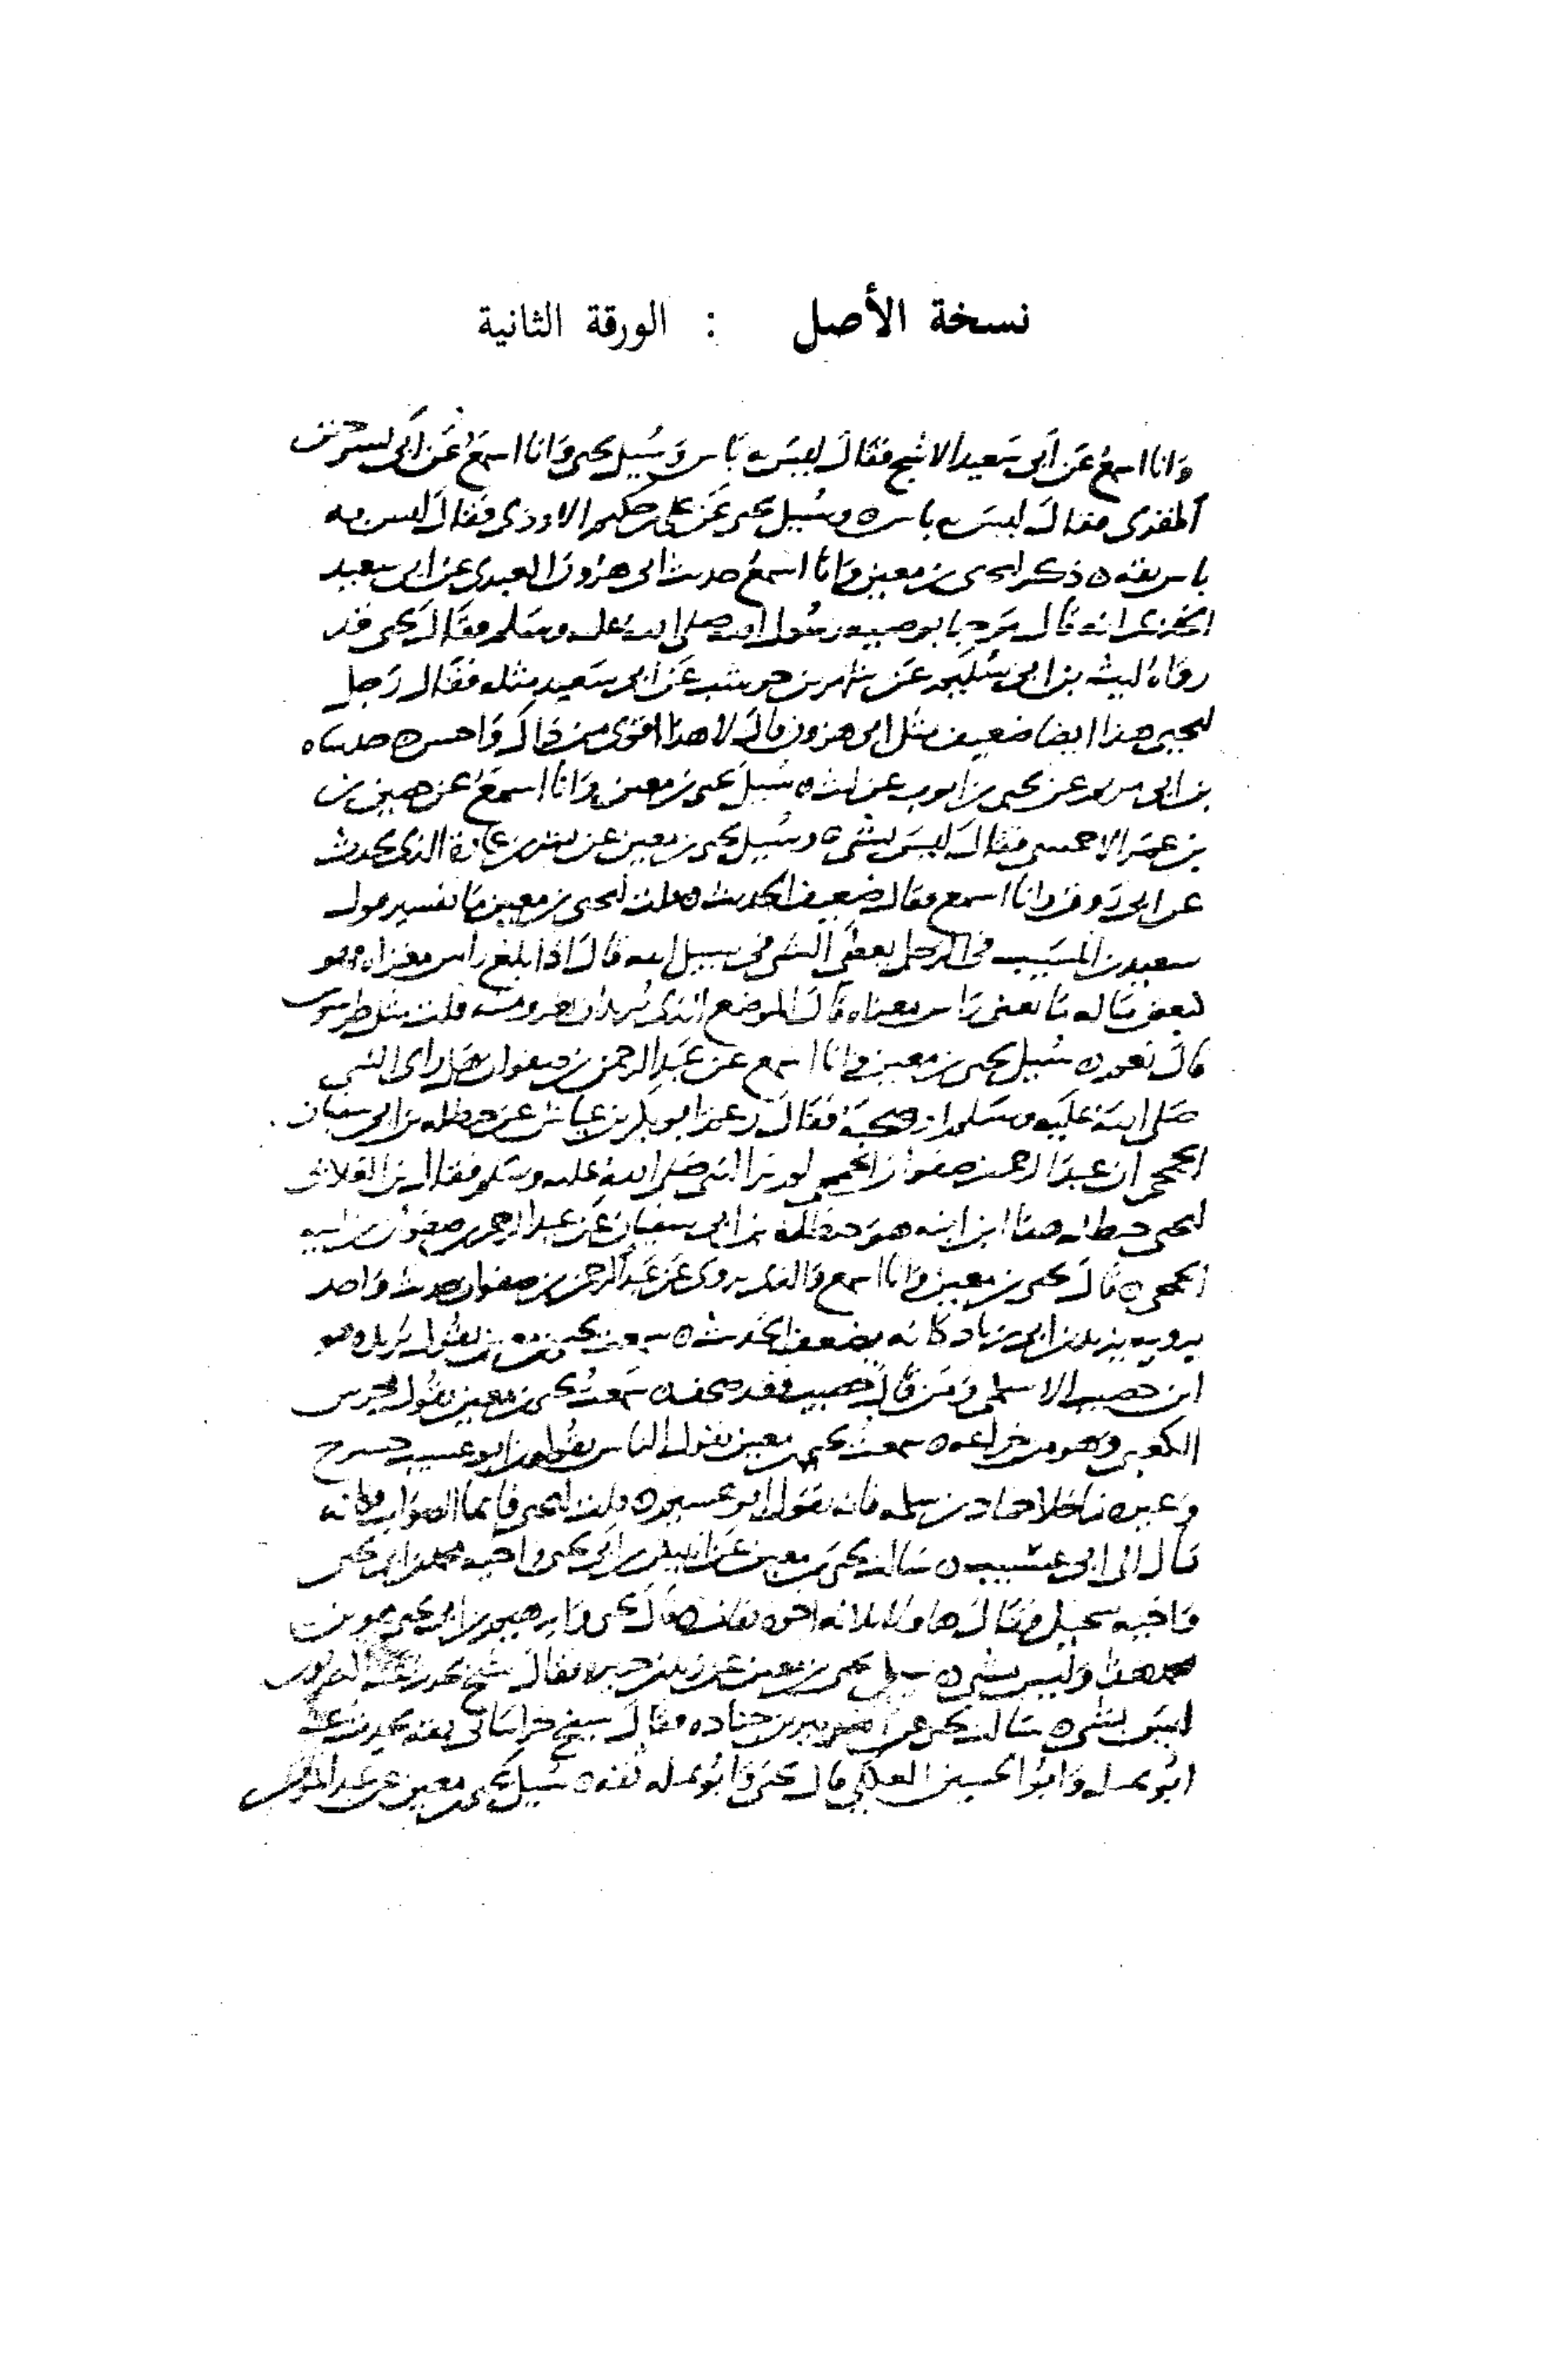 نسخة الأصل : الورقة الثانية
وانا اسمع عن ابي سعيد الاشج فقال ليس به باس وسئيل يحيى وانا اسمع عن ابي
المقرى فقال ليس به باس وسئيل يحيى عن علي بن حكيم الاودي فقال ليس به
باس ثقه ذكر ليحيى بن معين وانا اسمع حديث ابي هرون العبدي عن ابي سعيد
الخدري انه قال مرحبا بوصيه رسول الله صلى الله عليه وسلم فقال يحيى قد
رواه ليث بن ابي سليم عن شهر بن حوشب عن ابي سعيد مثله فقال رجل
ليحيى هذا ايضا ضعيف مثل ابي هرون قال لا هذا اقوى من ذاك واحسن حدثناه
بن ابي مريم عن يحيى بن ايوب عن ليث سئيل يحيى بن معين وانا اسمع عن حصين بن
بن عمر الاحمسي فقال ليس بشي وسئيل يحيى بن معين عن بشر بن عمارة الذي يحدث
عن ابي روق وانا اسمع فقال ضعيف الحديث قلت ليحيى بن معين ما تفسير قول
سعيد بن المسيب في الرجل يعطى الشي في سبيل الله قال اذا بلغ راس مغزاه فهو
كبعض ماله ما يعني راس مغزاه قال الموضع الذي يريد ان يغزو منه قلت مثل طرسوس
قال نعم سئيل يحيى بن معين وانا اسمع عن عبد الرحمن بن صفوان هل راى النبي
صلى الله عليه وسلم او صحبه فقال زعم ابو بكر بن عياش عن حنظله بن ابي سفيان
الجمحي ان عبد الرحمن بن صفوان الجمحي لم ير النبي صلى الله عليه وسلم فقال بن الفلاس
ليحيى حنظله هذا ابن ابنه هو حنظلة بن ابي سفيان عن عبد الرحمن بن صفوان بن اميه
الجمحي قال يحيى بن معين وانا اسمع والذي يروى عن عبد الرحمن بن صفوان حديث واحد
يرويه يزيد بن ابي زياد كانه يضعف الحديث سمعت يحيى بن معين يقول بريده هو
ابن حصيب الاسلمي ومن قال خصيب فقد صحف سمعت يحيى بن معين يقول محرش
الكعبي وهو من خزاعه سمعت يحيى بن معين يقول الناس يقولون ابو عسيب حشرج
وغيره ما خلا حماد بن سلمه فانه يقول ابو عسيم قلت ليحيى فايما الصواب فكانه
مال الى ابي عسيب سالت يحيى بن معين عن انيس بن ابي يحيى واخيه محمد بن ابي يحيى
واخيه سحبل فقال هاولا ثلاثه اخوه ثقات قال يحيى وابرهيم بن ابي يحيى هو بن
محمد هذا وليس بشي سئيل يحيى بن معين عن فقال شيخ يحدث عنه
ليس بشي سالت يحيى عن بن جناده فقال شيخ خراساني ثقه يحدث عنه
ابو تميله وابو الحسين العكلي قال يحيى وابو تميله ثقه سئيل يحيى بن معين عن عبد المومن